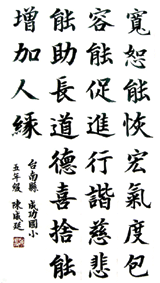 寬恕能恢宏氣度包
容能促進行諧慈悲
能助長道德喜捨能
增加人緣
台南縣 成功國小
五年級 陳威延